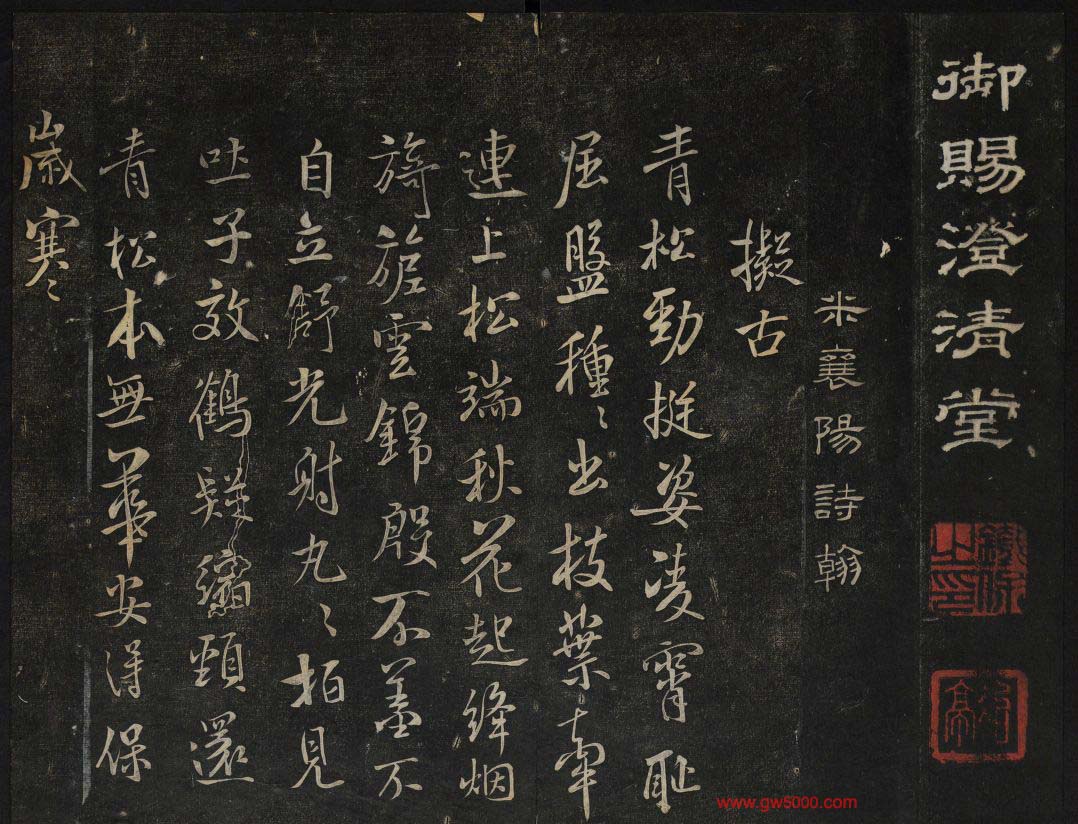 御賜澄清堂
米襄陽詩翰
擬古
青松勁挺姿凌霄耻
屈盤種〻出枝葉牽
連上松端秋花起絳烟
旖旎雲錦殷不羞不
自立舒光射丸〻柏見
吐子效鶴疑縮頸還
青松本無華安得保
歲寒〻
www.gw5000.com